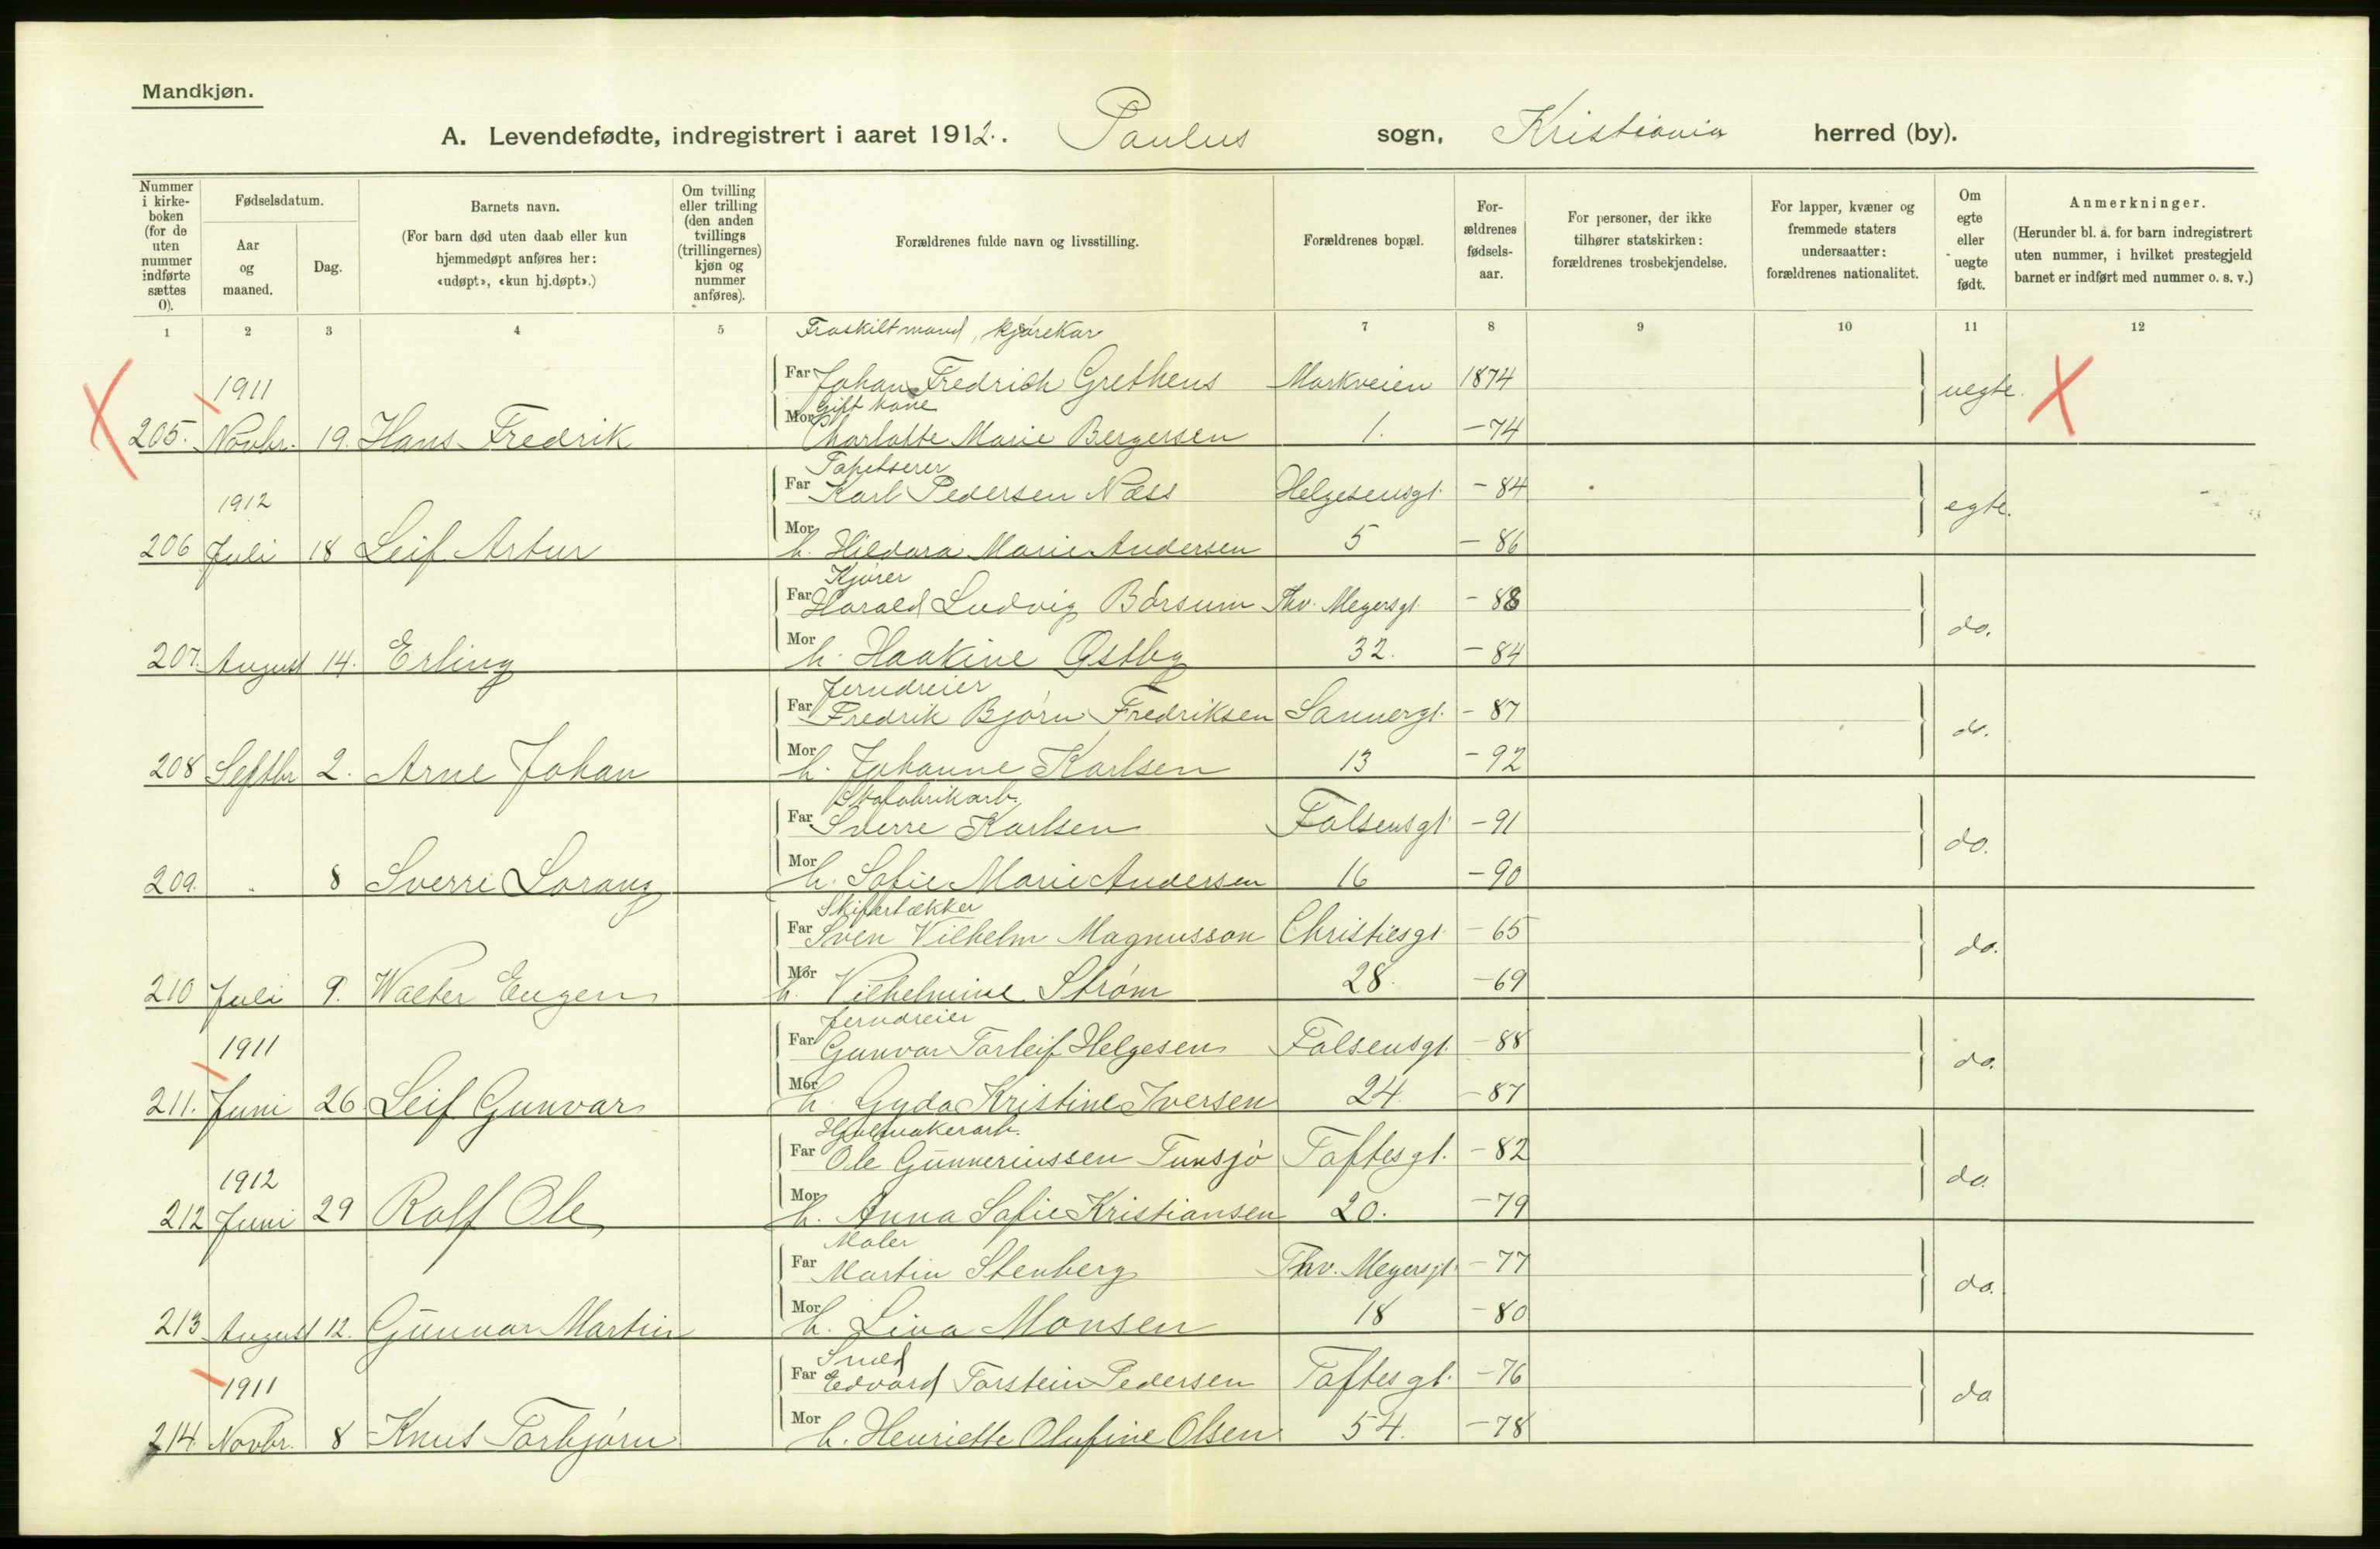 Mandkjøn.
A. Levendefødte, indregistrert i aaret 1912.. Paulus sogn, Kristiania herred (by).
Nummer i kirke-boken (for de uten nummer indførte sættes 0).
Fødselsdatum.
Aar og maaned.
Dag.
Barnets navn.
(For barn død uten daab eller kun hjemmedøpt anføres her: «udøpt», «kun hj.døpt».)
Om tvilling eller trilling (den anden tvillings (trillingernes) kjøn og nummer anføres).
Forældrenes fulde navn og livsstilling.
Forældrenes bopæl.
For-ældrenes fødsels-aar.
For personer, der ikke tilhører statskirken: forældrenes trosbekjendelse.
For lapper, kvæner og fremmede staters undersaatter: forældrenes nationalitet.
Om egte eller uegte født.
Anmerkninger.
(Herunder bl. a. for barn indregistrert uten nummer, i hvilket prestegjeld barnet er indført med nummer o. s. v.)
1 2 3 4 5 7 8 9 10 11 12
Fraskilt mand, kjørekar
1911 Far Johan Fredrich Grethens Markveien 1874 uegte.
Gift kone
205. Novbr. 19. Hans Fredrik Mor Charlotte Marie Bergersen 1. -74
Tapetserer
1912 Far Karl Pedersen Næss Helgesensgt. -84 egte.
206 Juli 18 Leif Artur Mor h. Hildara Marie Andersen 5 -86
Kjører
Far Harald Ludvig Børsum Thv. Meyersgt. -88 do.
207. August 14. Erling Mor h. Haakine Østby 32. -84
Jerndreier
Far Fredrik Bjørn Fredriksen Sannergt. -87 do.
208 Septbr 2. Arne Johan Mor h. Johanne Karlsen 13 -92
Skofabrikarb.
Far Sverre Karlsen Falsensgt -91 do.
209. " 8 Sverre Lorang Mor h. Sofie Marie Andersen 16 -90
Skifertækker
Far Sven Vilhelm Magnusson Christiesgt. -65 do.
210 Juli 9. Walter Eugen Mor h. Vilhelmine Strøm 28. -69
Jerndreier
1911 Far Gunvar Torleif Helgesen Falsensgt. -88 do.
211. Juni 26 Leif Gunvar Mor h. Gyda Kristine Iversen 24. -87
Hjulmakerarb.
1912 Far Ole Gunneriussen Tunsjø Toftesgt. -82 do.
212 Juni 29 Rolf Ole Mor h. Anna Sofie Kristiansen 20. -79
Maler
Far Martin Stenberg Thv. Meyersgt. -77 do.
213 August 12. Gunnar Martin Mor h. Lina Monsen 18 -80
Smed
1911 Far Edvard Torstein Pedersen Toftesgt. -76 do
214. Novbr. 8 Knut Torbjørn Mor h. Henriette Olufine Olsen 54. -78